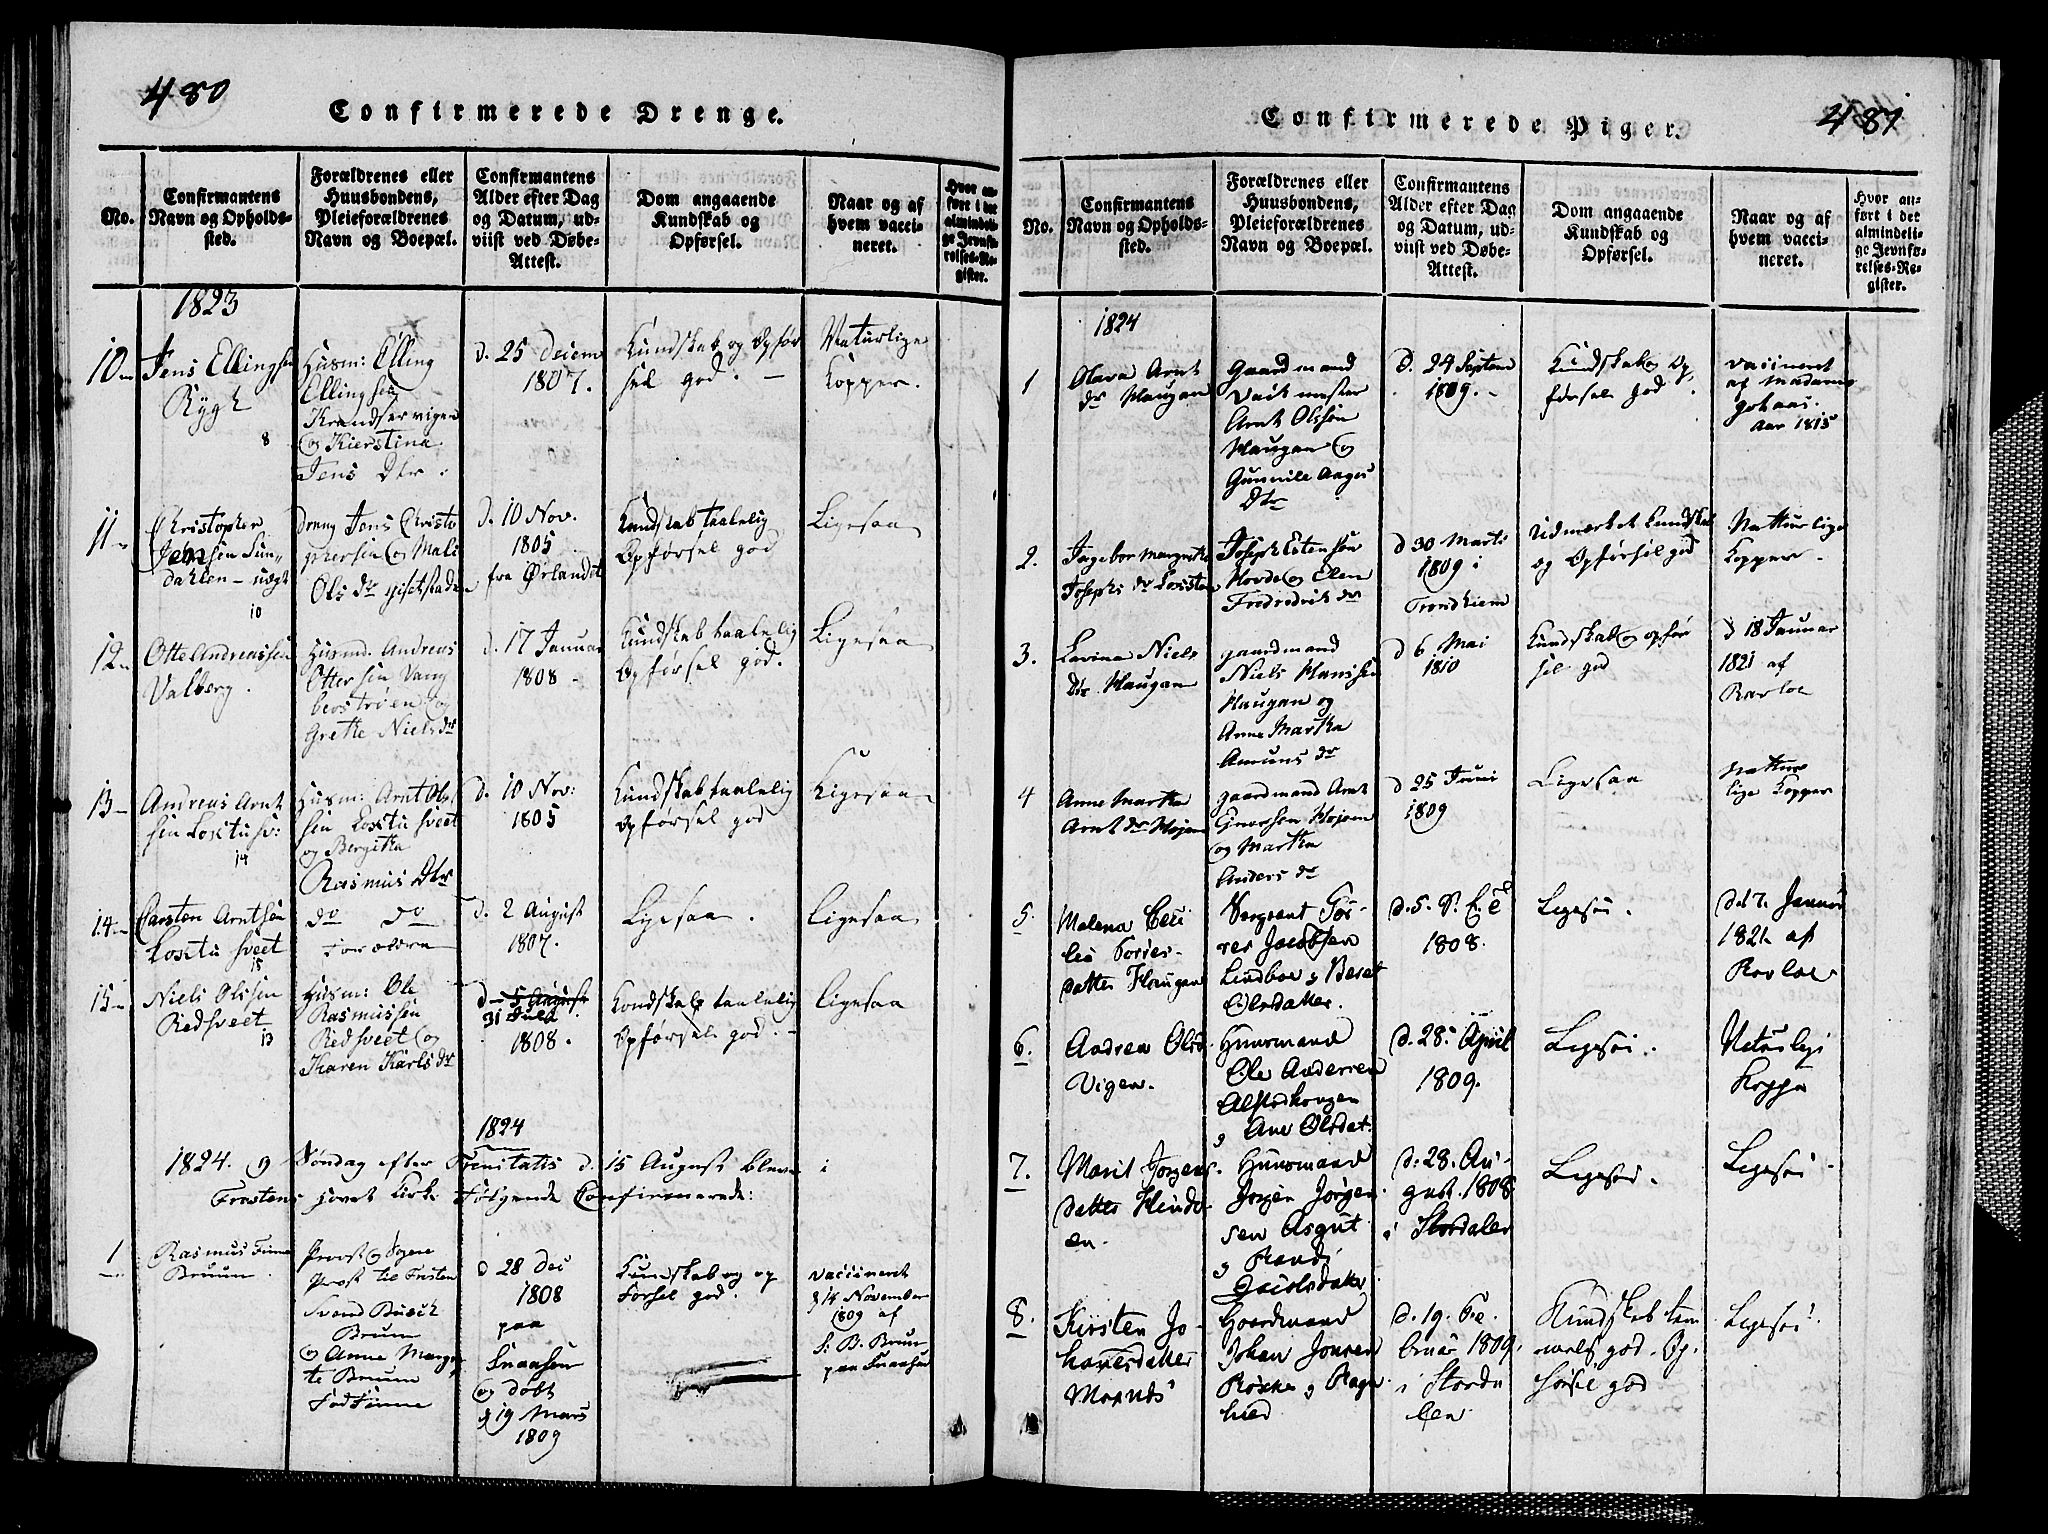 480
Confirmerede Drenge.
No.
Confirmantens
Navn og Opholds-
sted.
Forældrenes eller
Huusbondens,
Pleieforældrenes
Navn og Boepæl.
Confirmantens
Alder efter Dag
og Datum, ud-
viist ved Døbe-
Attest.
Dom angaaende
Kundskab og
Opførsel.
Naar og af
hvem vacci-
neret.
Hvor an-
ført i det
almindeli-
ge Jevnfø-
relses-Re-
gister.
1823
10
Jens Ellingsen
Rygh
8
Husm: Elling
Ellingsen
og Kierstina
Jens Dtr.
d. 25 Decem
1807.
Kundskab og Opfør
sel god.
Naturlige
Kopper.
11
Christopher
Jensen Sun-
dahlen
10
Jens Christo
phersen og Mali
Ols dr
d. 10 Nov.
1805
fra Ørlandet
Kundskab taalelig
Opførsel god
Ligesaa
12
Otte Andreassen
Valberg.
Husmd. Andreas
Ottersen Vang
berstrøen og
Grethe Niels dr
d. 17 Januar
1808
Kundskab taalelig
Opførsel god.
Ligesaa
13
Andreas Arnt
sen
14
Husm: Arnt Ols
sen
og Bergitha
Rasmus Dtr
d. 10 Nov:
1805
Kundskab taalelig
Opførsel god
Ligesaa
14
Carsten Arntsen
15
do do
Forældre
d. 2 August
1807.
Ligesaa.
Ligesaa
15
Niels Olsen
Redsveet
13
Husm: Ole
Rasmussen
Redsveet og
Karen Karls dr
d. 5 August
31 Julii
1808.
Kundskab taalelig
Opførsel god.
Ligesaa
1824
1824. 9 Søndag efter Trenitatis d. 15 August bleve i
Frostens hovet Kirke Følgende Confirmerede:
1
Rasmus Finne
Bruun.
Provst og Sogne
præst til Frosten
Svend Busch
Bruun
og Anne Margre
te Bruun
Fød Finne
d 28 Dec
1808
paa
Snaasen
og døbt
d 19 Mars
1809
Kundskab og op
førsel god.
vaccineret
d 14 November
1809 af
S: B. Bruun
paa Snaasen
481
Confirmerede Piger.
No.
Confirmantens
Navn og Opholds-
sted.
Forældrenes eller
Huusbondens,
Pleieforældrenes
Navn og Boepæl.
Confirmantens
Alder efter Dag
og Datum, ud-
viist ved Døbe-
Attest.
Dom angaaende
Kundskab og
Opførsel.
Naar og af
hvem vacci-
neret.
Hvor an-
ført i det
almindeli-
ge Jevnfø-
relses-Re-
gister.
1824
1
Olava Arnt
dr Haugan
Gaardmand
Arnt Olsen
Haugan og
Gunnile Aages
Dtr
d. 24 Septem
1809.
Kundskab og Op
førsel god.
vaccineret
af Madame
aar 1815
2.
Ingebor Margrethe
Josephs dr
Joseph Estensen
Hovde og Elen
Fredrik dr
d 30 Marts
1809 i
Trondhiem
Udmærket Kundskab
og Opførsel god
Natturlige
Kopper.
3.
Lavina Niels
Dtr Haugan
gaardmand
Niels Hansen
Haugan og
Anne Martha
Amuns dr
d 6 Mai
1810
Kundskab og opfør
sel god
d 18 Januar
1821 af
Barloe
4
Anne Martha
Arnt dr Hojem
gaardmand Arnt
Hojem
og Martha
Anders dr
d 25 Juni
1809
Ligesaa
Nattur
lige Kopper
5.
Malena Ceci
lia Torres-
datter Haugan
Sergeant Tor-
res Jacobsen
Lindboe og Beret
Olsdatter.
d. 5.
1808.
Ligesaa.
d. 17. Januar
1821 af
Barloe
6.
Andrea Olsd.
Vigen.
Huusmand
Ole Andersen
og Ane Olsdat.
d. 28. April
1809.
Ligesaa.
Naturlige
Kopper
7.
Marit Jorgens
datter
Huusmand
Jorgen Jørgen-
sen
og Randi
d. 28. Au-
gust. 1808
i Stordalen
Ligesaa.
Ligesaa
8.
Kirsten Jo-
hansdatter
Gaardmand
Johan Jonsen
og Ragn
hild
d. 19. Fe-
bruar 1809.
i Storda
len
Kundskab tem
melig god. Op-
førsel god
Ligesaa.